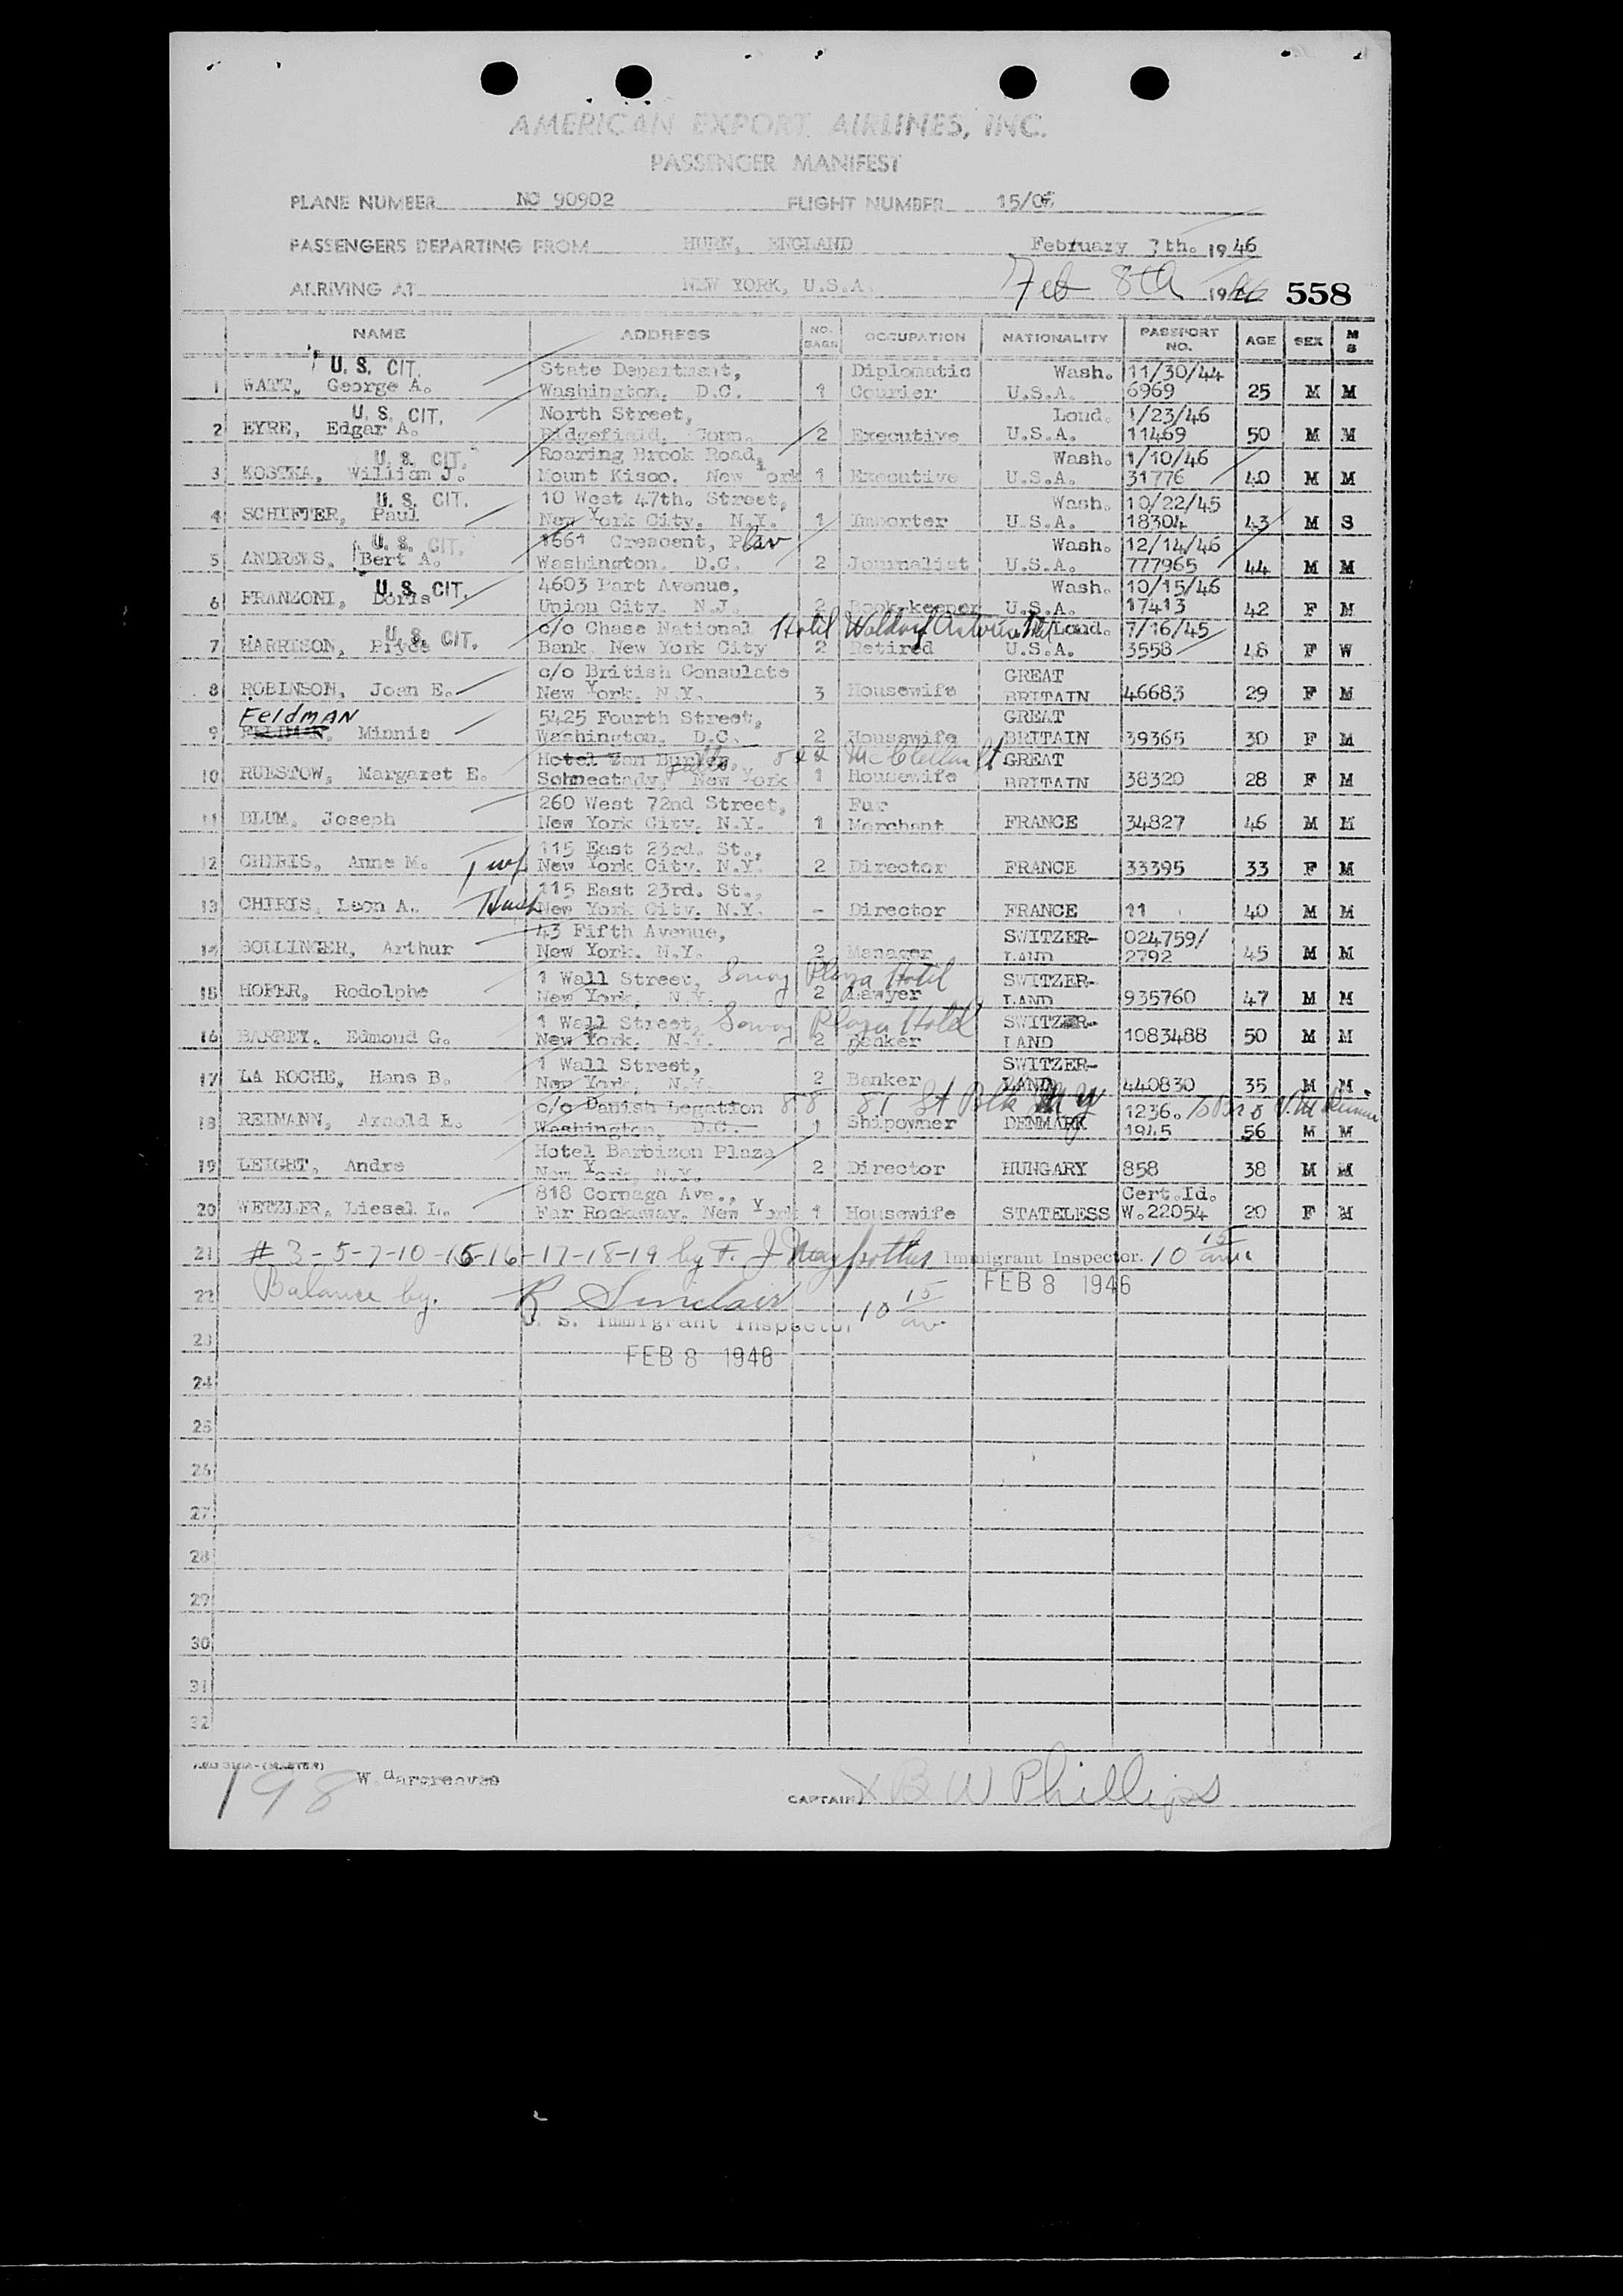 AMERICAN EXPORT AIRLINES, INC.
PASSENGER MANIFEST
PLANE NUMBER NC 90902 FLIGHT NUMBER 15/06
PASSENGERS DEPARTING FROM HURN, ENGLAND February 7th. 1946
ARRIVING AT NEW YORK, U.S.A. Feb 8th 1946 558
NAME ADDRESS NO. BAGS OCCUPATION NATIONALITY PASSPORT NO. AGE SEX M S
U. S. CIT. State Department, Diplomatic Wash. 11/30/44
1 WATT, George A. Washington, D.C. 1 Courier U.S.A. 6969 25 M M
U. S. CIT. North Street, Lond. 1/23/46
2 EYRE, Edgar A. Ridgefield, Conn. 2 Executive U.S.A. 11469 50 M M
U. S. CIT. Roaring Brook Road, Wash. 1/10/46
3 KOSTKA, William J. Mount Kisco, New York 1 Executive U.S.A. 31776 40 M M
U. S. CIT. 10 West 47th. Street, Wash. 10/22/45
4 Paul New York City, N.Y. 1 Importer U.S.A. 18304 43 M S
U. S. CIT. 1661 Crescent, Wash. 12/14/46
5 ANDREWS, Bert A. Washington, D.C. 2 Journalist U.S.A. 777965 44 M M
U. S. CIT. 4603 Part Avenue, Wash. 10/15/46
6 FRANZONI, Doris Union City, N.J. 2 Book-keeper U.S.A. 17413 42 F M
U. S. CIT. c/o Chase National Hotel Waldorf Astoria Lond. 7/16/45
7 HARRISON, Pryde Bank, New York City 2 Retired U.S.A. 3558 48 F W
c/o British Consulate GREAT
8 ROBINSON, Joan E. New York, N.Y. 3 Housewife BRITAIN 46683 29 F M
FeldmAN 5425 Fourth Street, GREAT
9 Minnie Washington, D.C. 2 Housewife BRITAIN 39365 30 F M
Hotel Van 522 McClellan St GREAT
10 RUESTOW, Margaret E. Schnectady, New York 1 Housewife BRITAIN 38320 28 F M
260 West 72nd Street, Fur
11 BLUM, Joseph New York City, N.Y. 1 Merchant FRANCE 34827 46 M M
115 East 23rd. St.,
12 CHIRIS, Anne M. wf New York City, N.Y. 2 Director FRANCE 33395 33 F M
115 East 23rd. St.,
13 CHIRIS, Leon A. Husb New York City, N.Y. - Director FRANCE 11 40 M M
43 Fifth Avenue, SWITZER- 024759/
14 BOLLINGER, Arthur New York, N.Y. 2 Manager LAND 2792 45 M M
1 Wall Street, Savoy Plaza Hotel SWITZER-
15 HOFER, Rodolphe New York, N.Y. 2 Lawyer LAND 935760 47 M M
1 Wall Street, Savoy Plaza Hotel SWITZER-
16 BARBEY, Edmond G. New York, N.Y. 2 Banker LAND 1083488 50 M M
1 Wall Street, SWITZER-
17 LA ROCHE, Hans B. New York, N.Y. 2 Banker LAND 440830 35 M M
c/o Danish Legation 1236.
18 REIMANN, Arnold E. Washington, D.C. 1 Shipowner DENMARK 1945 56 M M
Hotel Barbizon Plaza
19 LEIGHT, Andre New York, N.Y. 2 Director HUNGARY 858 38 M M
818 Cornaga Ave., Cert.Id.
20 WETZLER, Liesel L. Far Rockaway, New York 1 Housewife STATELESS W.22054 20 F M
21 # 3-5-7-10-15-16-17-18-19 by F. J Immigrant Inspector. 10 15
22 Balance by. R Sinclair 10 15 FEB 8 1946
U. S. Immigrant Inspector
23
FEB 8 1946
24
25
26
27
28
29
30
31
32
198 W. Hargreaves
CAPTAIN X B W Phillips